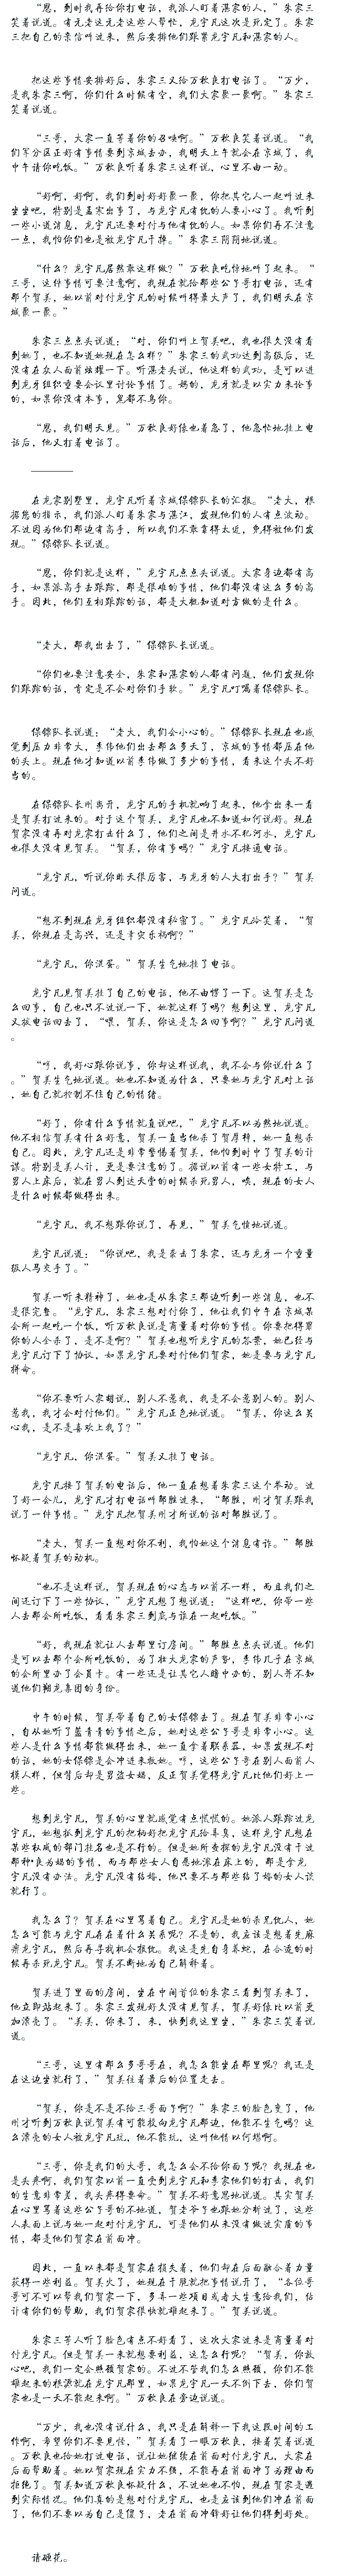 “恩，到时我再给你打电话，我派人盯着湛家的人，”朱家三
笑着说道。有元老这元老这些人帮忙，龙宇凡这次是死定了。朱家
三把自己的亲信叫过来，然后安排他们跟紧龙宇凡和湛家的人。
把这些事情安排好后，朱家三又给万秋良打电话了。“万少，
是我朱家三啊，你们什么时候有空，我们大家聚一聚啊。”朱家三
笑着说道。
“三哥，大家一直等着你的召唤啊。”万秋良笑着说道。“我
们军分区正好有事情要到京城去办，我明天上午就会在京城了，我
中午请你吃饭。”万秋良听着朱家三这样说，心里不由一动。
“好啊，好啊，我们到时好好聚一聚，你把其它人一起叫过来
坐坐吧，特别是孟家出事了，与龙宇凡有仇的人要小心了。我听到
一些小道消息，龙宇凡还要对付与他有仇的人。如果你们再不注意
一点，我怕你们也是被龙宇凡干掉。”朱家三阴阴地说道。
“什么？龙宇凡居然敢这样做？”万秋良吃惊地叫了起来。“
三哥，这件事情可要注意啊，我现在就给那些公子哥打电话，还有
那个贺美，她以前对付龙宇凡的时候叫得最大声了，我们明天在京
城聚一聚。”
朱家三点点头说道：“对，你们叫上贺美吧，我也很久没有看
到她了，也不知道她现在怎么样？”朱家三的武功达到高级后，还
没有在众人面前炫耀一下。听湛老头说，他这样的武功，是可以进
到龙牙组织重要会议里讨论事情了。妈的，龙牙就是以实力来论事
的，如果你没有本事，鬼都不鸟你。
“恩，我们明天见。”万秋良好像也着急了，他急忙地挂上电
话后，他又打着电话了。
————
在龙家别墅里，龙宇凡听着京城保镖队长的汇报。“老大，根
据您的指示，我们派人盯着朱家与湛江，发现他们的人有点波动。
不过因为他们那边有高手，所以我们不敢靠得太近，免得被他们发
现。”保镖队长说道。
“恩，你们就是这样，”龙宇凡点点头说道。大家身边都有高
手，如果派高手去跟踪，那是很难的事情，他们都没有这么多的高
手。因此，他们互相跟踪的话，都是大概知道对方做的是什么。
“老大，那我出去了，”保镖队长说道。
“你们也要注意安全，朱家和湛家的人都有问题，他们发现你
们跟踪的话，肯定是不会对你们手软。”龙宇凡叮嘱着保镖队长。
保镖队长说道：“老大，我们会小心的。”保镖队长现在也感
觉到压力非常大，李伟他们出去那么多天了，京城的事情都压在他
的头上。现在他才知道以前李伟做了多少的事情，看来这个头不好
当的。
在保镖队长刚离开，龙宇凡的手机就响了起来，他拿出来一看
是贺美打过来的。对于这个贺美，龙宇凡也不知道如何说好。现在
贺家没有再对龙家打击什么了，他们之间是井水不犯河水，龙宇凡
也很久没有见贺美。“贺美，你有事吗？”龙宇凡接通电话。
“龙宇凡，听说你昨天很厉害，与龙牙的人大打出手？”贺美
问道。
“想不到现在龙牙组织都没有秘密了。”龙宇凡冷笑着，“贺
美，你现在是高兴，还是幸灾乐祸啊？”
“龙宇凡，你混蛋。”贺美生气地挂了电话。
龙宇凡见贺美挂了自己的电话，他不由愣了一下。这贺美是怎
么回事，自己也只不过说一下，她就这样了吗？想到这里，龙宇凡
又拔电话回去了，“喂，贺美，你这是怎么回事啊？”龙宇凡问道
。
“哼，我好心跟你说事，你却这样说我，我不会与你说什么了
。”贺美生气地说道。她也不知道为什么，只要她与龙宇凡对上话
，她自己就控制不住自己的情绪。
“好了，你有什么事情就直说吧，”龙宇凡不以为然地说道。
他不相信贺美有什么好意，贺美一直当他杀了贺厚梓，她一直想杀
自己。因此，龙宇凡还是非常警惕着贺美，他怕到时中了贺美的计
谋。特别是美人计，更是要注意的了。据说以前有一些女特工，与
男人上床后，就在男人到达天堂的时候杀死男人，唉，现在的女人
是什么时候都做得出来。
“龙宇凡，我不想跟你说了，再见，”贺美气愤地说道。
龙宇凡说道：“你说吧，我是袭击了朱家，还与龙牙一个重量
级人马交手了。”
贺美一听来精神了，她也是从朱家三那边听到一些消息，也不
是很完整。“龙宇凡，朱家三想对付你了，他让我们中午在京城某
会所一起吃一个饭，听万秋良说是商量着对你的事情。你要把得罪
你的人全杀了，是不是啊？”贺美也想听龙宇凡的答案，她已经与
龙宇凡订下了协议，如果龙宇凡要对付他们贺家，她是要与龙宇凡
拼命。
“你不要听人家胡说，别人不惹我，我是不会惹别人的。别人
惹我，我才会对付他们。”龙宇凡正色地说道。“贺美，你这么关
心我，是不是喜欢上我了？”
“龙宇凡，你混蛋。”贺美又挂了电话。
龙宇凡接了贺美的电话后，他一直在想着朱家三这个举动。过
了好一会儿，龙宇凡才打电话叫邹胜过来，“邹胜，刚才贺美跟我
说了一件事情。”龙宇凡把贺美刚才所说的话对邹胜说了。
“老大，贺美一直想对你不利，我怕她这个消息有诈。”邹胜
怀疑着贺美的动机。
“也不是这样说，贺美现在的心态与以前不一样，而且我们之
间还订下了一些协议，”龙宇凡想了想说道：“这样吧，你带一些
人去那会所吃饭，看看朱家三到底与谁在一起吃饭。”
“好，我现在就让人去那里订房间。”邹胜点点头说道。他们
是可以去那个会所吃饭的，为了壮大龙家的声誉，李伟几乎在京城
的会所里办了会员卡。有一些还是让其它人暗中办的，别人并不知
道他们翔龙集团的身份。
中午的时候，贺美带着自己的女保镖去了。现在贺美非常小心
，自从她听了蓝青青的事情之后，她对这些公子哥是非常小心。这
些人是什么事情都能做得出来，她一直拿着联系器，如果发现不对
的话，她的女保镖是会冲进来救她。哼，这些公子哥在别人面前人
模人样，但背后却是男盗女娼，反正贺美觉得龙宇凡比他们好上一
些。
想到龙宇凡，贺美的心里就感觉有点慌慌的。她派人跟踪过龙
宇凡，她想抓到龙宇凡的把柄好把龙宇凡给弄臭，这样龙宇凡想在
某些权威的部门挂名也是不行的。但是她所查探的龙宇凡没有干过
那种·良为娼的事情，而与那些女人自愿地滚在床上的，那是拿龙
宇凡没有办法。龙宇凡没有结婚，他只要不与那些结了婚的女人该
就行了。
我怎么了？贺美在心里骂着自己。龙宇凡是她的杀兄仇人，她
怎么可能与龙宇凡再在着什么关系呢？不是的，我应该是想着先麻
痹龙宇凡，然后再寻找机会报仇。我这是先自身养蛇，在合适的时
候再杀死龙宇凡。贺美不断地为自己解释着。
贺美进了里面的房间，坐在中间首位的朱家三看到贺美来了，
他立即站起来了。朱家三发现好久没有见贺美，贺美好像比以前更
加漂亮了。“美美，你来了，来，快到我这里坐，”朱家三笑着说
道。
“三哥，这里有那么多哥哥在，我怎么能坐在那里呢？我还是
在这边坐就行了，”贺美往着最后的位置走去。
“贺美，你是不是不给三哥面子啊？”朱家三的脸色变了，他
刚才听到万秋良说贺美有可能投向龙宇凡那边，他能不生气吗？这
么漂亮的女人被龙宇凡玩，他不能玩，这叫他情以何堪啊。
“三哥，你是我们的大哥，我怎么会不给你面子呢？我现在也
是头疼啊，我们贺家以前一直受到龙宇凡和李家他们的打击，我们
的生意非常差，我头疼得要命。”贺美不好意思地说道。其实贺美
在心里骂着这些公子哥的不地道，贺老爷子也跟她分析过了，这些
人表面上说与她一起对付龙宇凡，可是他们从来没有做过实质的事
情，都是他们贺家在前面冲。
因此，一直以来都是贺家在损失着，他们却在后面融合着力量
获得一些利益。贺美火了，她现在干脆就把事情说开了，“各位哥
哥可不可以帮我们贺家一下，多弄一些项目或者大生意给我们，估
计有你们的帮助，我们贺家很快就雄起来了。”贺美说道。
朱家三等人听了脸色有点不好看了，这次大家过来是商量着对
付龙宇凡。但是贺美一来就想要利益，这怎么行呢？“贺美，你放
心吧，我们一定会照顾贺家的。不过不管我们怎么照顾，你们不能
雄起来的根源就在龙宇凡那里，如果龙宇凡一天不倒下去，你们贺
家也是一天不能起来啊。”万秋良在旁边说道。
“万少，我也没有说什么，我只是在解释一下我这段时间的工
作啊，希望你们不要见怪，”贺美看了一眼万秋良，接着笑着说道
。万秋良也给她打过电话，说让她继续在前面对付龙宇凡，大家在
后面帮助着。她以贺家现在实力不强，不能再在前面冲了为理由而
拒绝了。贺美知道万秋良怀疑什么，不过她也不怕，现在贺家是遇
到实际情况。他们真的是想对付龙宇凡，也是应该到他们冲在前面
了，他们不要以为自己是傻子，老在前面冲锋好让他们得到好处。
请砸花。